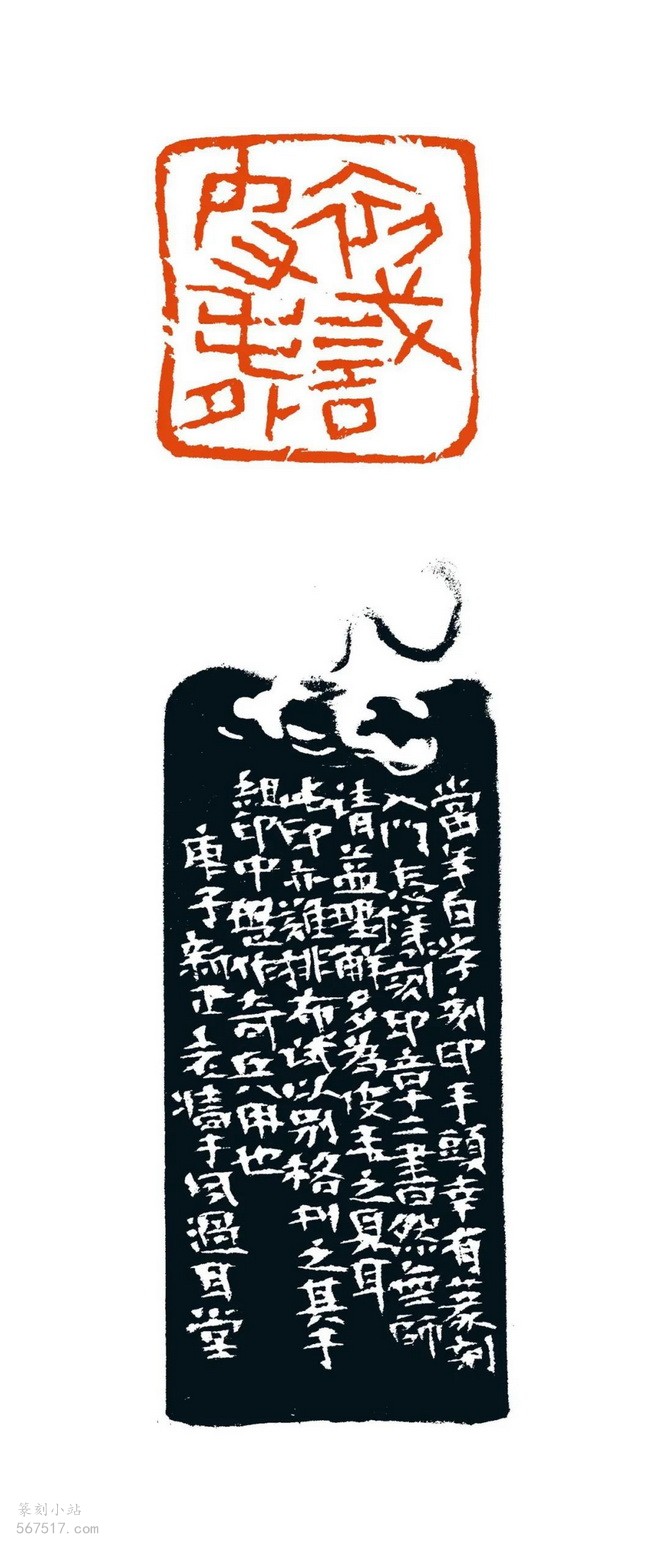 當年自学刻印手頭幸有篆刻
入門怎樣刻印章二書然無師
请益理解多為皮表之見耳
此印亦難排布试以别格刊之其于
組印中權作奇兵用也
庚子新正 于 過耳堂
篆刻小站
567517.com